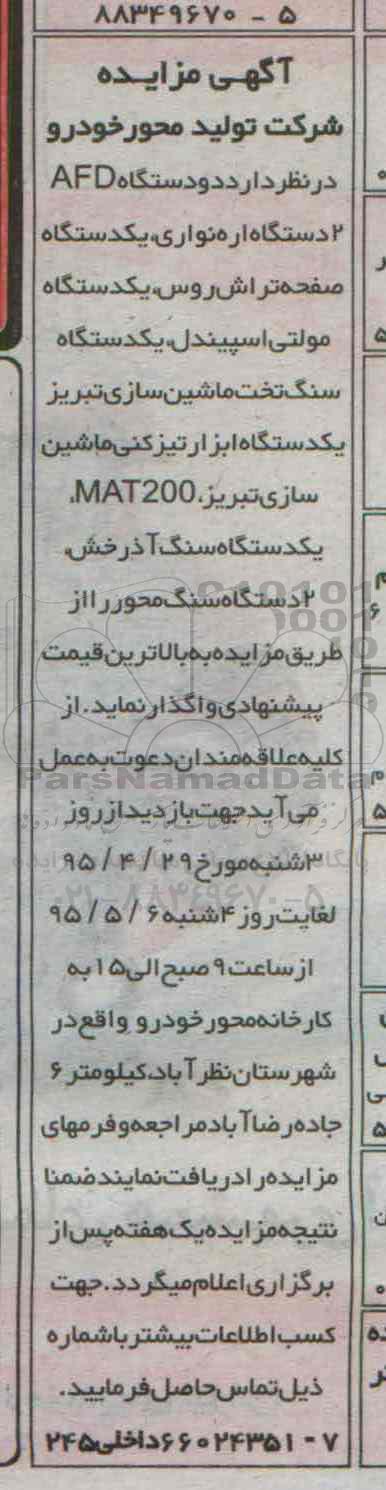 ۸۸۳۴۹۶۷۰ - ۵
آگهی مزایده
شرکت تولید محورخودرو
درنظردارددودستگاهAFD
۲دستگاه‌اره‌نواری،یکدستگاه
صفحه‌تراش‌روس،یکدستگاه
مولتی‌اسپیندل،یکدستگاه
سنگ‌تخت‌ماشین‌سازی‌تبریز
یکدستگاه‌ابزارتیزکنی‌ماشین
سازی‌تبریز،MAT200،
یکدستگاه‌سنگ‌آذرخش،
۲دستگاه‌سنگ‌محوررااز
طریق‌مزایده‌به‌بالاترین‌قیمت
پیشنهادی‌واگذارنماید.از
کلیه‌علاقه‌مندان‌دعوت‌به‌عمل
ParsNamadData
می‌آیدجهت‌بازدیدازروز
۳شنبه‌مورخ۲۹ / ۴ / ۹۵
۰۲۱-۸۸۳۴۹۶۷۰-۵
لغایت‌روز۴شنبه۶ / ۵ / ۹۵
ازساعت۹صبح‌الی۱۵به
کارخانه‌محورخودرو واقع‌در
شهرستان‌نظرآباد،کیلومتر۶
جاده‌رضاآبادمراجعه‌وفرمهای
مزایده‌رادریافت‌نمایندضمنا
نتیجه‌مزایده‌یک‌هفته‌پس‌از
برگزاری‌اعلام‌میگردد.جهت
کسب‌اطلاعات‌بیشترباشماره
ذیل‌تماس‌حاصل‌فرمایید.
۷ - ۶۶۰۲۴۳۵۱داخلی۲۴۵